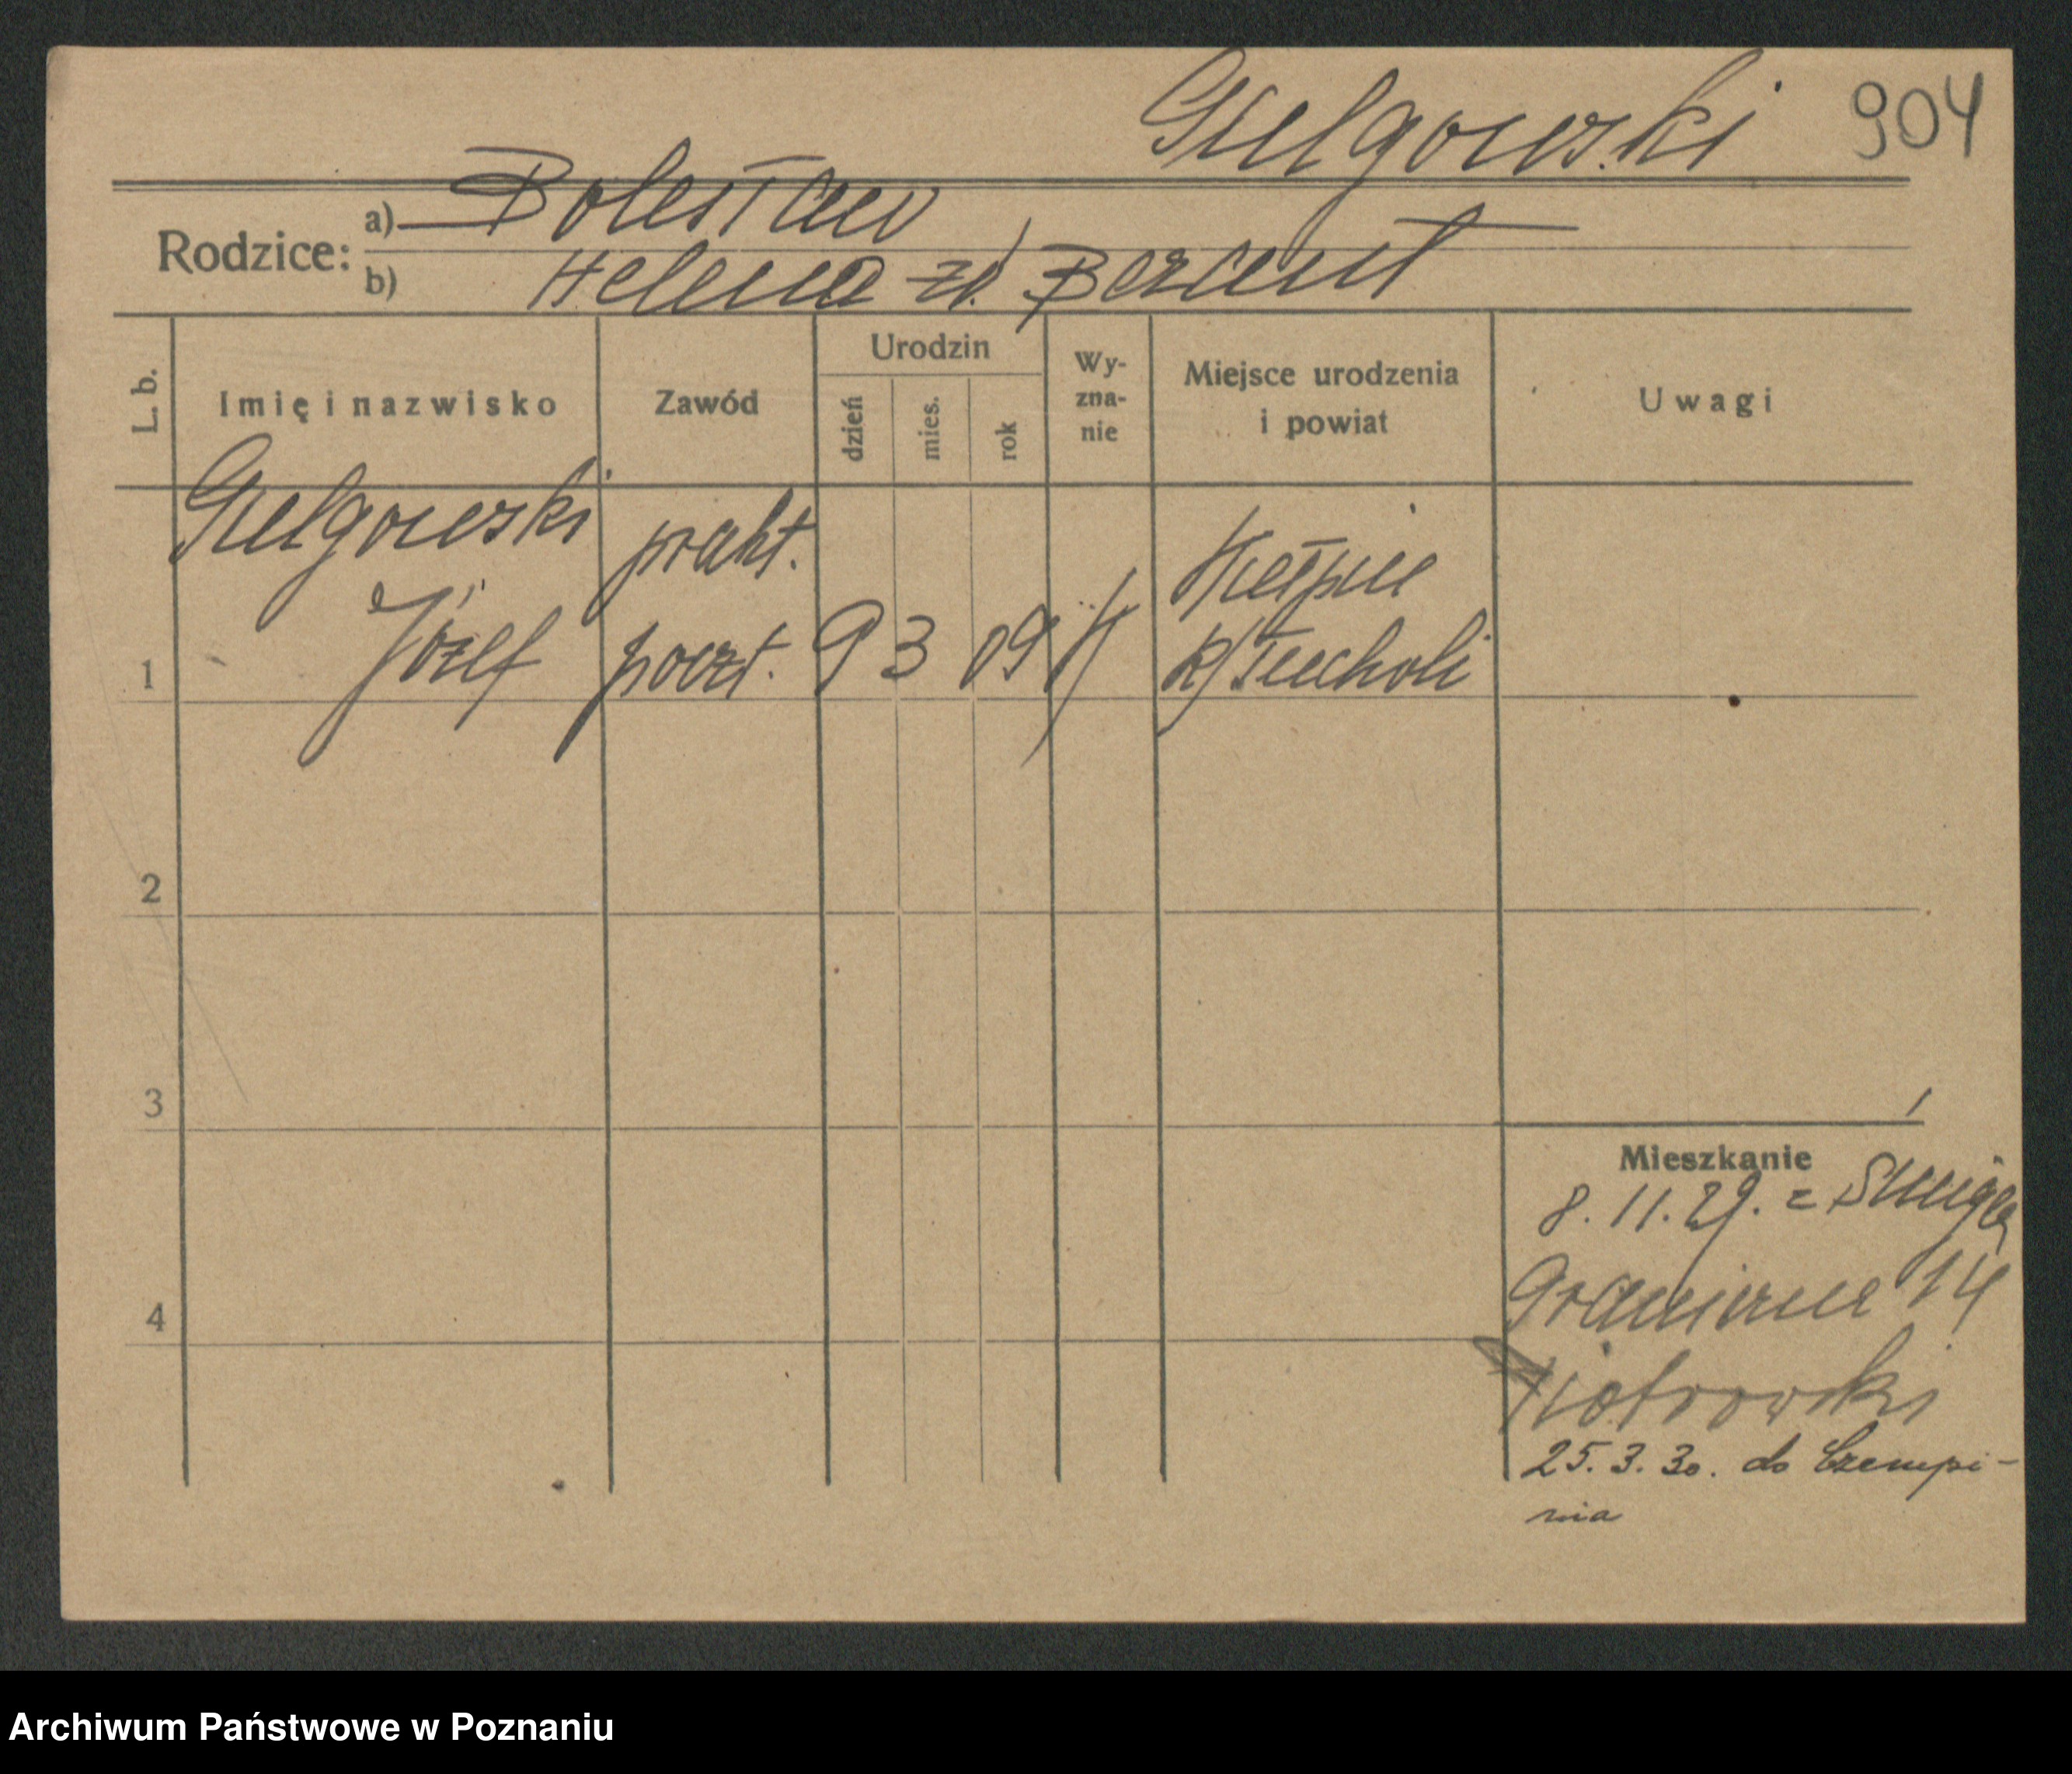 Gielgowski 904
Rodzice: a) Bolesław
b) Helena zd. Berent
L. b. Imię i nazwisko Zawód Urodzin dzień mies. rok Wy-zna-nie Miejsce urodzenia i powiat Uwagi
Gielgowski prakt. Kiełpie
1 Józef poczt. 9 3 09 K p/Tucholi
2
3
Mieszkanie
8. 11. 29. z Śmigla
Graniczna 14
4
Piotrowski
25. 3. 30. do Czempi-
nia
Archiwum Państwowe w Poznaniu